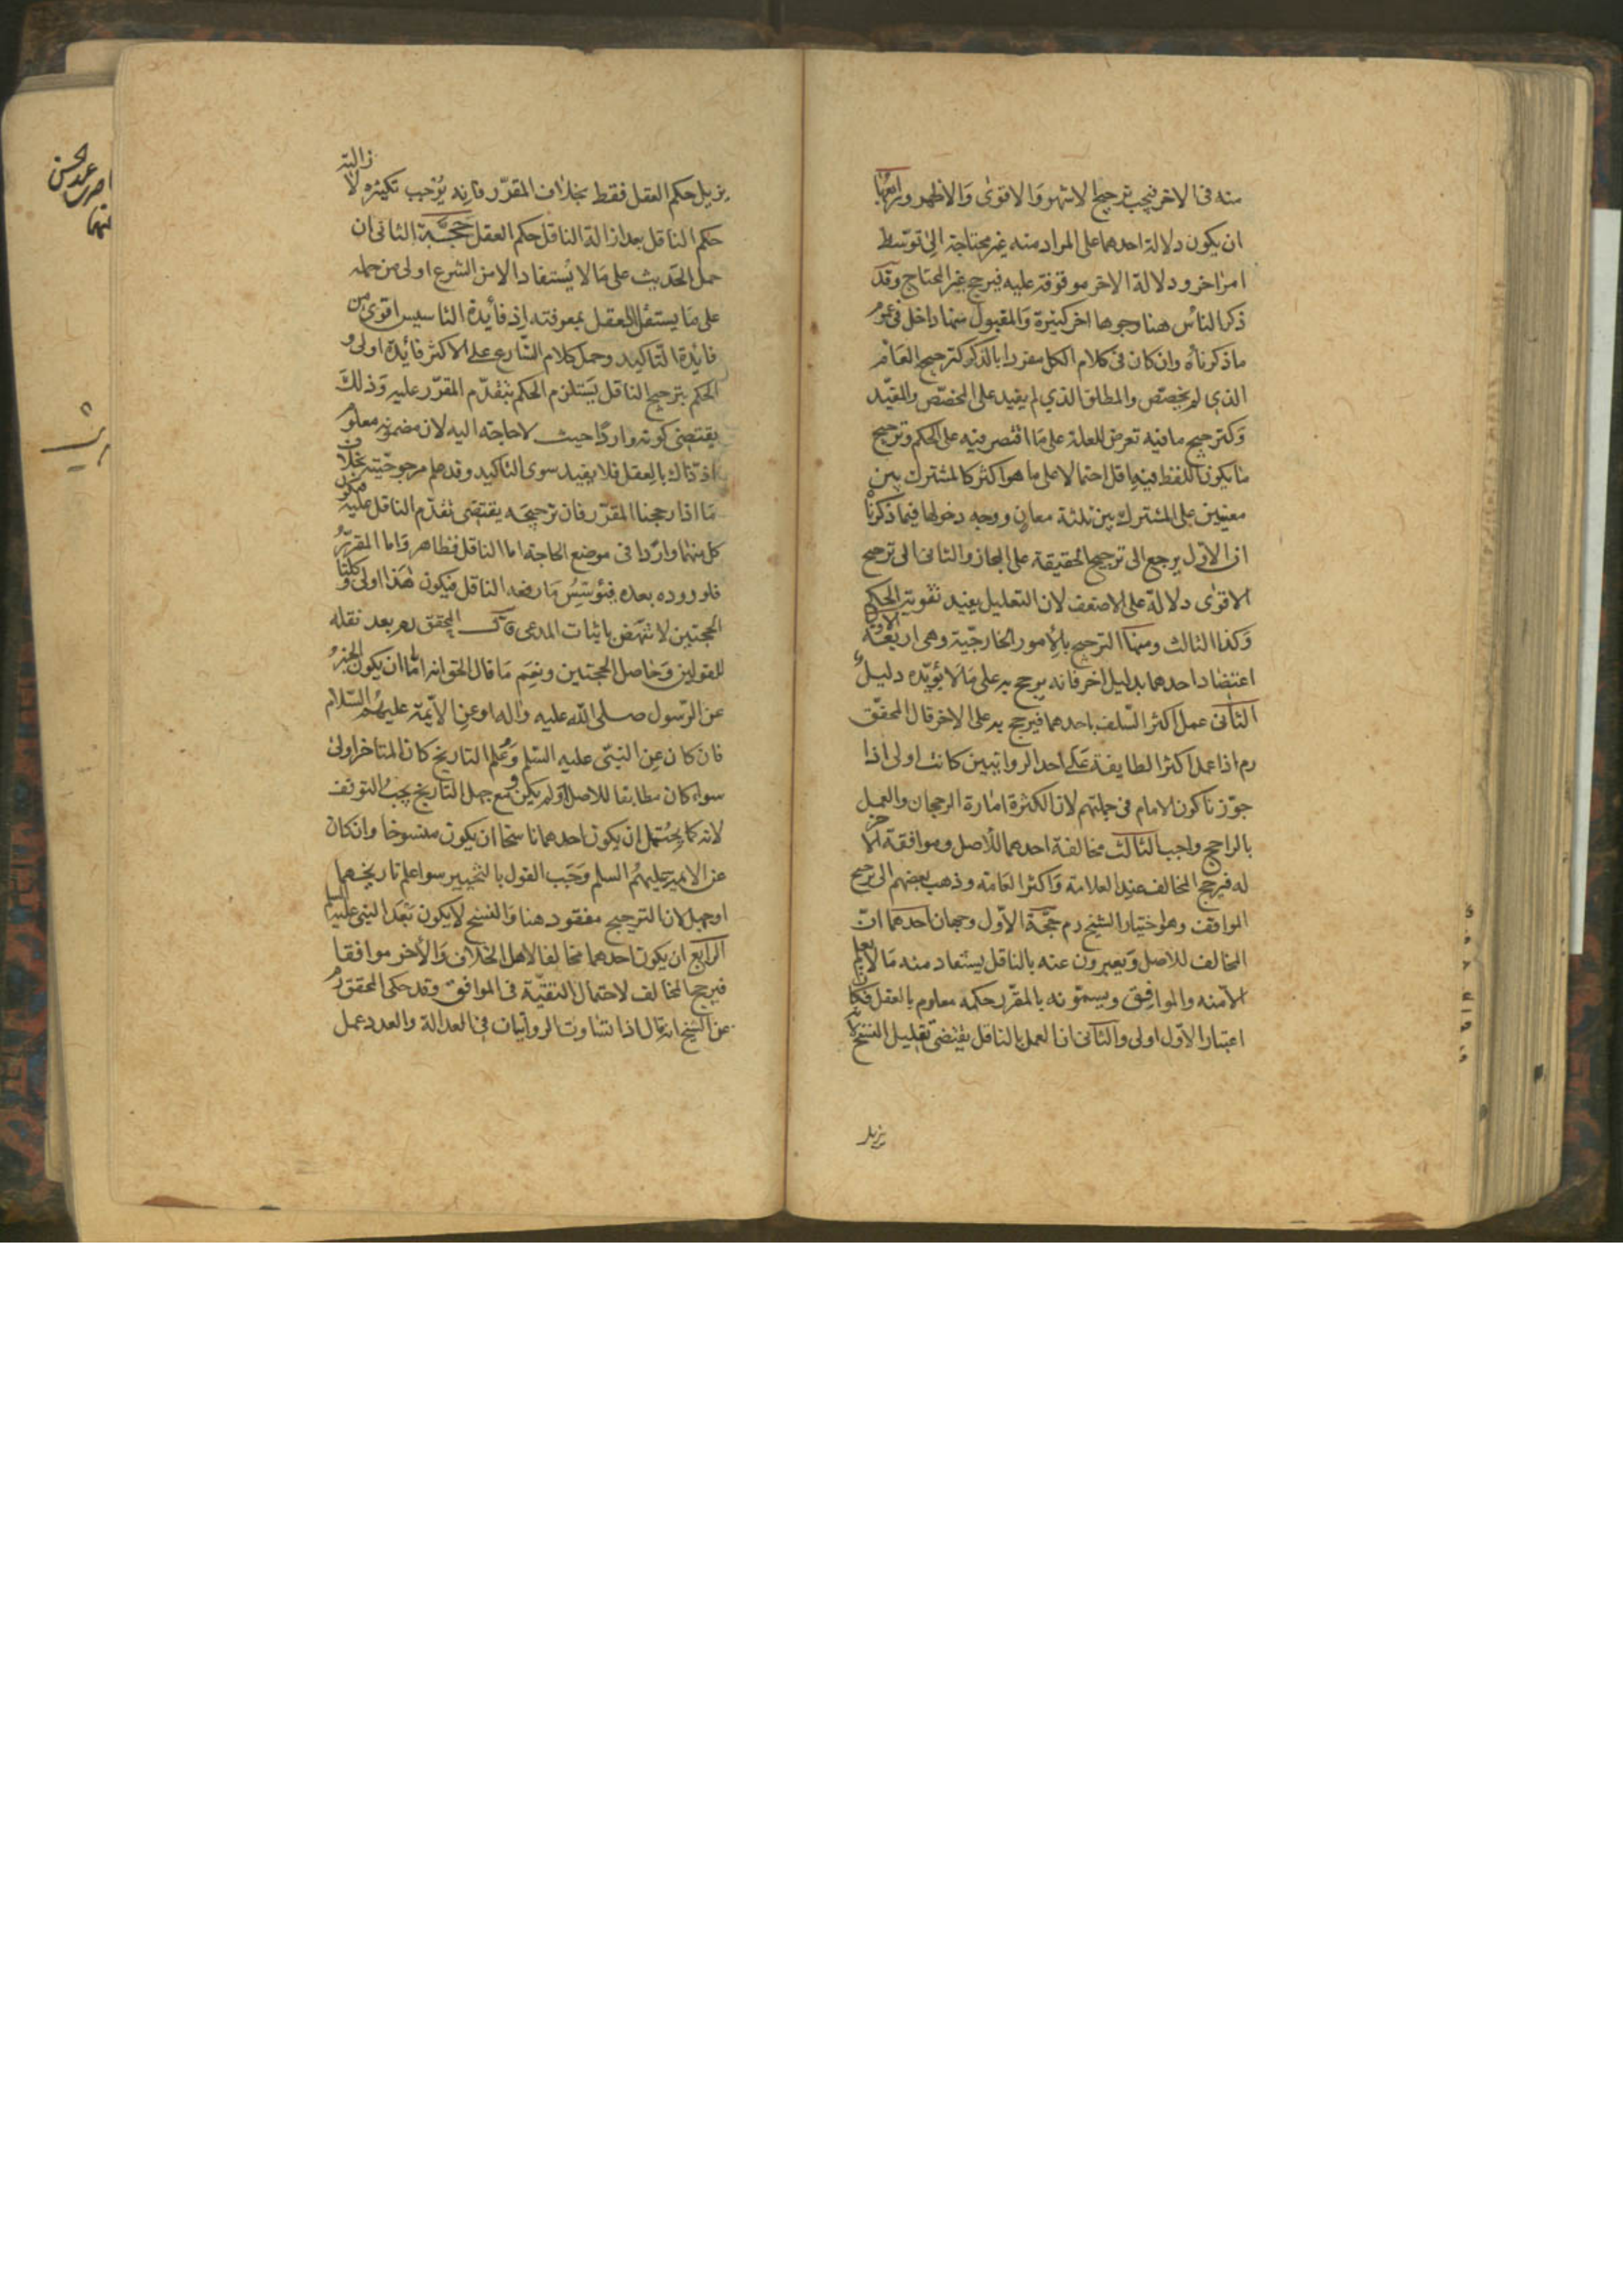 منه فى الاخر فيجب ترجيح الاشهر والاقوى والاظهر ورابعها
ان يكون دلالة احدهما على المراد منه غير محتاجة الى توسّط
امر اخر ودلالة الاخر موقوفة عليه فيرجح غير المحتاج وقد
ذكر الناس هنا وجوها اخر كثيرة والمقبول منها داخل فى عموم
ما ذكرناه وان كان فى كلام الكل مفردا بالذكر كترجيح العام
الذى لم يخصّص والمطلق الذي لم يقيد على المخصّص والمقيّد
وكترجيح ما فيه تعرض للعلة على ما اقتصر فيه على الحكم وترجيح
ما يكون اللفظ فيه اقل احتمالا على ما هو اكثر كالمشترك بين
معنيين على المشترك بين ثلثة معان ووجه دخولها فيما ذكرنا
ان الاول يرجع الى ترجيح الحقيقة على المجاز والثانى الى ترجيح
الاقوى دلالة على الاضعف لان التعليل يفيد تقوية الحكم
وكذا الثالث ومنها الترجيح بالامور الخارجيّة وهى اربعة الاول
اعتضاد احدهما بدليل اخر فانه يرجح به على ما لا يؤيّده دليل
الثانى عمل اكثر السّلف باحدهما فيرجح به على الاخر قال المحقّق
رم اذا عمل اكثر الطايفة على احد الروايتين كانت اولى اذا
جوّزنا كون الامام فى جملتهم لان الكثرة امارة الرجحان والعمل
بالراجح واجب الثالث مخالفة احدهما للاصل وموافقة الاخر
له فيرجح المخالف عند العلامة واكثر العامة وذهب بعضهم الى ترجيح
الموافق وهو اختيار الشيخ رم حجّة الاوّل وجهان احدهما انّ
المخالف للاصل ويعبرون عنه بالناقل يستفاد منه ما لا يعلم
الا منه والموافق ويسمّونه بالمقرّر حكمه معلوم بالعقل فكان
اعتبار الاول اولى والثانى ان العمل بالناقل يقتضى تقليل النسخ لانّه
يزيل
يزيل حكم العقل فقط بخلاف المقرّر فانه يوجب تكثيره لازالته
حكم الناقل بعد ازالة الناقل حكم العقل حجّة الثانى ان
حمل الحديث على ما لا يستفاد الا من الشرع اولى من حمله
على ما يستقل العقل بمعرفته اذ فائدة التاسيس اقوى من
فائدة التّاكيد وحمل كلام الشّارع على الاكثر فائدة اولى و
الحكم بترجيح الناقل يستلزم الحكم بتقدّم المقرّر عليه وذلك
يقتضى كونه واردا حيث لا حاجة اليه لان مضمونه معلوم
اذ ذاك بالعقل فلا يفيد سوى التاكيد وقد علم مرجوحيّته بخلاف
ما اذا رجحنا المقرّر فان ترجيحه يقتضى تقدّم الناقل عليه فيكون
كل منهما واردا فى موضع الحاجة اما الناقل فظاهر واما المقرّر
فلوروده بعده فيؤسّس ما رفعه الناقل فيكون هذا اولى وكلتا
الحجتين لا تنهض باثبات المدعى قال المحقق رم بعد نقله
للقولين وحاصل الحجتين ونعم ما قال الحق انه امّا ان يكون الخبر
عن الرّسول صلى الله عليه واله او عن الائمة عليهم السّلام
فان كان عن النبىّ عليه السّلم وعلم التاريخ كان المتاخر اولى
سواء كان مطابقا للاصل او لم يكن ومع جهل التاريخ يجب التوقف
لانه كما يحتمل ان يكون احدهما ناسخا ان يكون منسوخا وان كان
عن الائمة عليهم السلم وجب القول بالتخيير سوا علم تاريخهما
او جهل لان الترجيح مفقود هنا والنسخ لا يكون بعد النبى عليه السلم
الرابع ان يكون احدهما مخالفا لاهل الخلاف والاخر موافقا
فيرجح المخالف لاحتمال التقيّة فى الموافق وقد حكى المحقق رم
عن الشيخ انه قال اذا تساوت الروايتان فى العدالة والعدد عمل